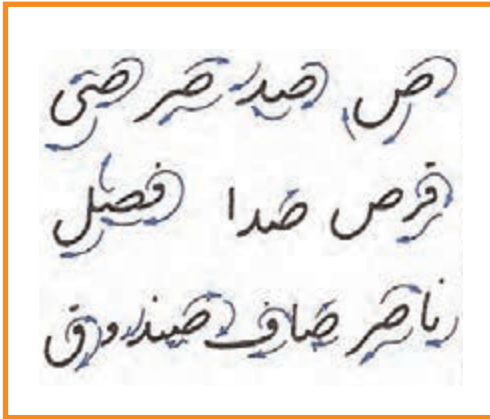 ص صد
قرص صدا فصل
ناصر صاف صندوق